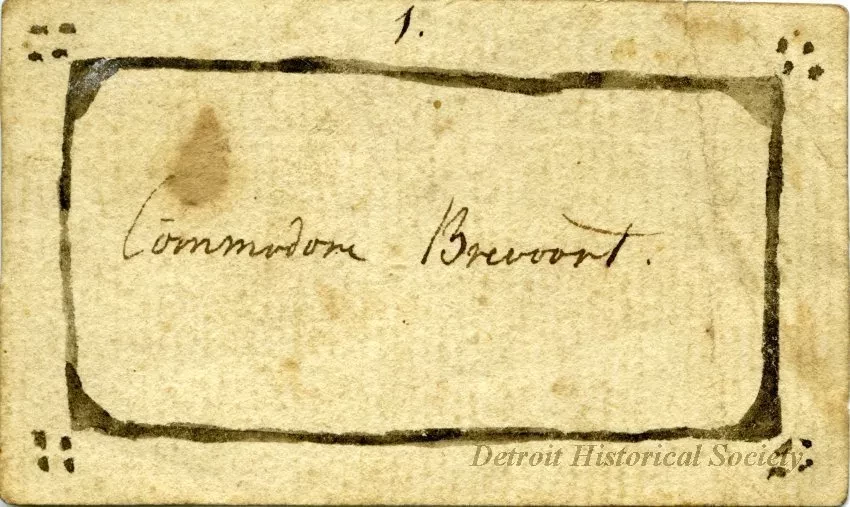 1.
Commodore Brevoort.
Detroit Historical Society